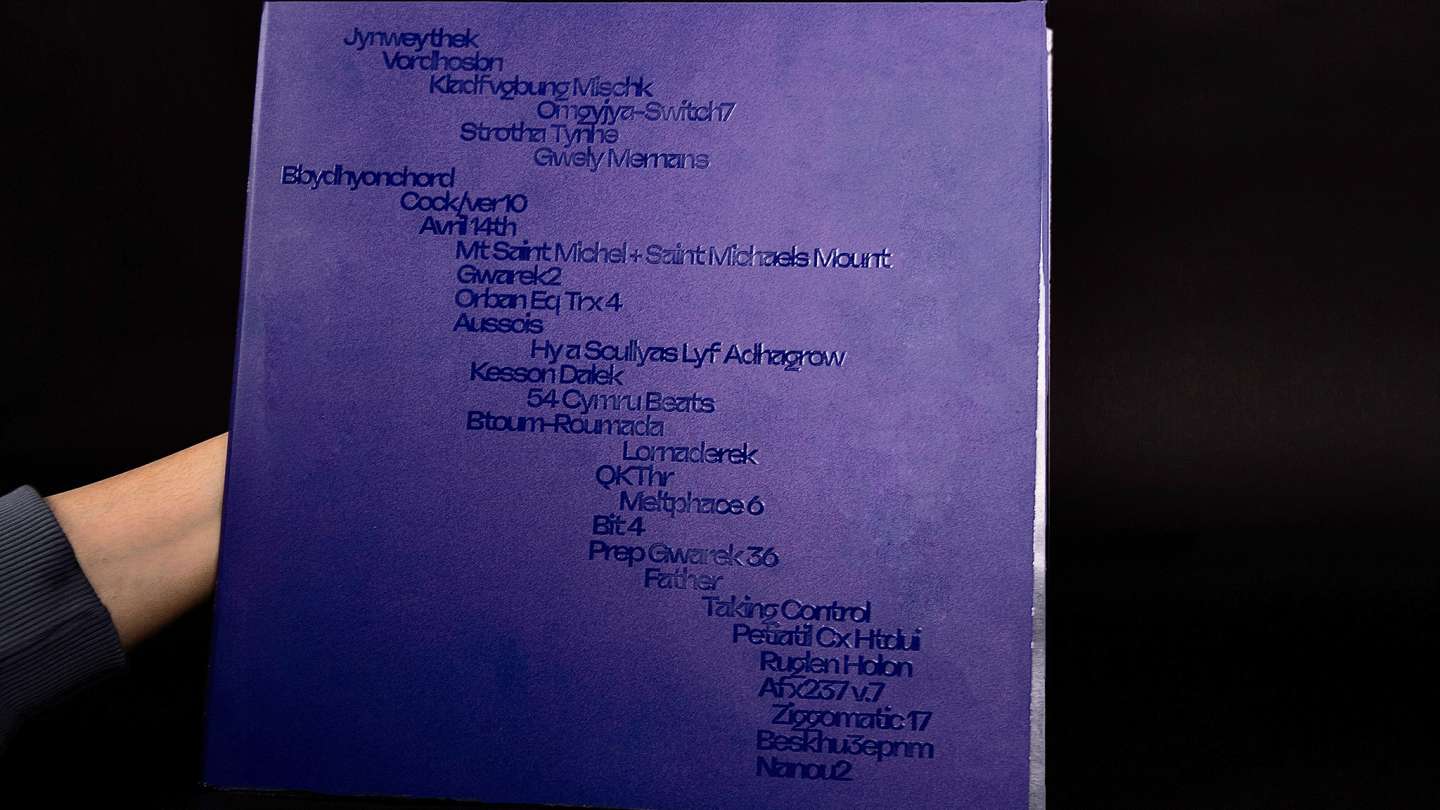 Jynweythek
Vordhosbn
Kladfvgbung Mischk
Omgyjya-Switch7
Strotha Tynhe
Gwely Mernans
Bbydhyonchord
Cock/ver10
Avril 14th
Mt Saint Michel + Saint Michaels Mount
Gwarek2
Orban Eq Trx 4
Aussois
Hy a Scullyas Lyf Adhagrow
Kesson Dalek
54 Cymru Beats
Btoum-Roumada
Lornaderek
QKThr
Meltphace 6
Bit 4
Prep Gwarek 36
Father
Taking Control
Petiatil Cx Htdui
Ruglen Holon
Afx237 v.7
Ziggomatic 17
Beskhu3epnm
Nanou2